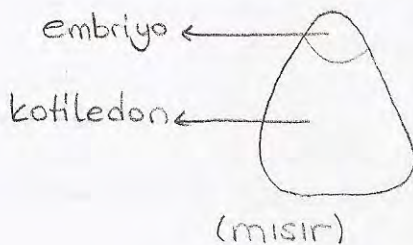 embriyo
kotiledon
(mısır)